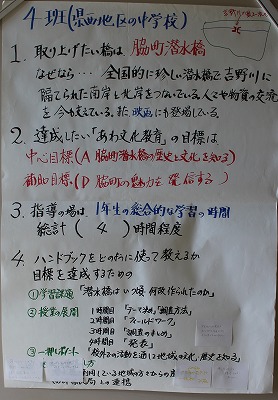 4班(県西地区の中学校)
1. 取り上げたい橋は 脇町潜水橋
なぜなら… 全国的に珍しい潜水橋で吉野川に
隔てられた南岸と北岸をつないでいる。人々や物資の交流
を今も支えている。また、映画にも登場している。
2. 達成したい「あわ文化教育」の目標は
中心目標(A 脇町潜水橋の歴史と文化を知る)
補助目標(D 脇町の魅力を発信する)
3. 指導の場は 1年生の総合的な学習の時間
総計 (4) 時間程度
4. ハンドブックをどのように使って教えるか
目標を達成するための
①学習課題 「潜水橋はいつ頃、何故作られたのか」
②授業の展開 1時間目 「テーマ決め」「調査方法」
2時間目 「フィールドワーク」
3時間目 「調査のまとめ」
4時間目 「発表」
「校外での活動を通して地域の文化、歴史を知る」
との連携